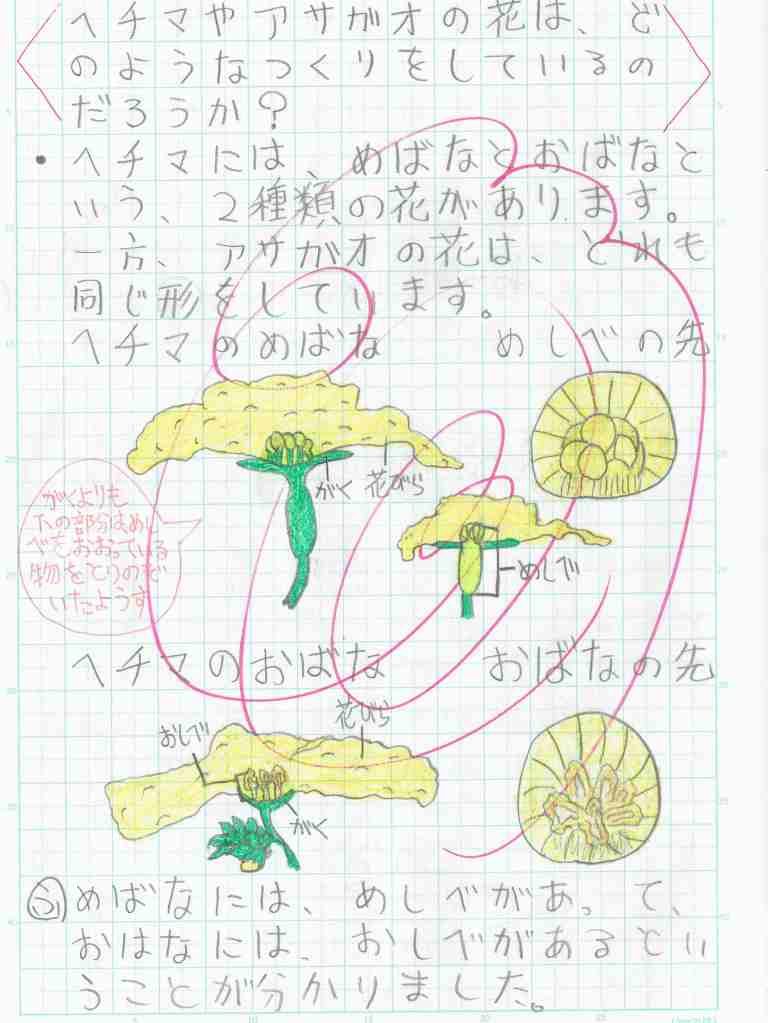 ヘチマやアサガオの花は、ど
のようなつくりをしているの
だろうか？
・ヘチマには、めばなとおばなと
いう、2種類の花があります。
一方、アサガオの花は、どれも
同じ形をしています。
ヘチマのめばな
めしべの先
がく
花びら
がくよりも
下の部分はめし
べをおおっている
物をとりのぞ
いたようす
めしべ
ヘチマのおばな
おばなの先
おしべ
花びら
がく
ふ めばなには、めしべがあって、
おはなには、おしべがあるとい
うことが分かりました。